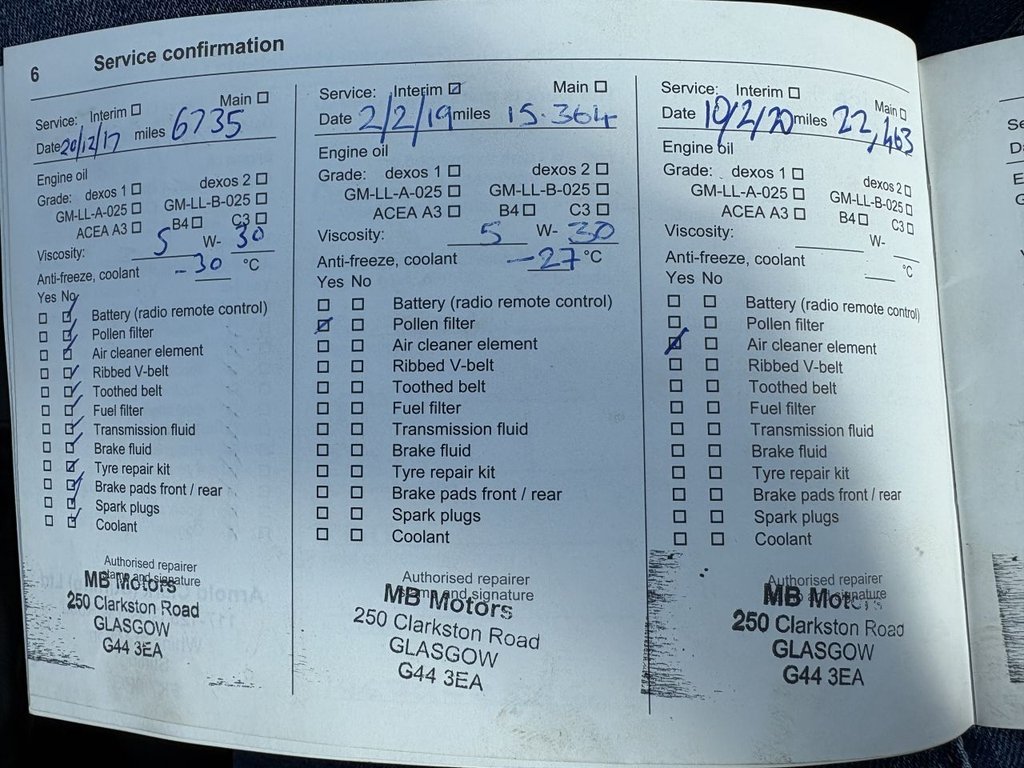 6 Service confirmation
Service: Interim ☐ Main ☐
Date 20/12/17 miles 6735
Engine oil
Grade: dexos 1 ☐ dexos 2 ☐
GM-LL-A-025 ☐ GM-LL-B-025 ☐
ACEA A3 ☐ B4 ☐ C3 ☐
Viscosity: 5 W- 30
Anti-freeze, coolant -30 °C
Yes No
☐ ☑ Battery (radio remote control)
☐ ☑ Pollen filter
☐ ☑ Air cleaner element
☐ ☑ Ribbed V-belt
☐ ☑ Toothed belt
☐ ☑ Fuel filter
☐ ☑ Transmission fluid
☐ ☑ Brake fluid
☐ ☑ Tyre repair kit
☐ ☑ Brake pads front / rear
☐ ☑ Spark plugs
☐ ☑ Coolant
Authorised repairer
stamp and signature
MB Motors
250 Clarkston Road
GLASGOW
G44 3EA
Service: Interim ☑ Main ☐
Date 2/2/19 miles 15.364
Engine oil
Grade: dexos 1 ☐ dexos 2 ☐
GM-LL-A-025 ☐ GM-LL-B-025 ☐
ACEA A3 ☐ B4 ☐ C3 ☐
Viscosity: 5 W- 30
Anti-freeze, coolant -27 °C
Yes No
☐ ☐ Battery (radio remote control)
☑ ☐ Pollen filter
☐ ☐ Air cleaner element
☐ ☐ Ribbed V-belt
☐ ☐ Toothed belt
☐ ☐ Fuel filter
☐ ☐ Transmission fluid
☐ ☐ Brake fluid
☐ ☐ Tyre repair kit
☐ ☐ Brake pads front / rear
☐ ☐ Spark plugs
☐ ☐ Coolant
Authorised repairer
stamp and signature
MB Motors
250 Clarkston Road
GLASGOW
G44 3EA
Service: Interim ☐ Main ☐
Date 10/2/20 miles 22,463
Engine oil
Grade: dexos 1 ☐ dexos 2 ☐
GM-LL-A-025 ☐ GM-LL-B-025 ☐
ACEA A3 ☐ B4 ☐ C3 ☐
Viscosity: W-
Anti-freeze, coolant °C
Yes No
☐ ☐ Battery (radio remote control)
☐ ☐ Pollen filter
☑ ☐ Air cleaner element
☐ ☐ Ribbed V-belt
☐ ☐ Toothed belt
☐ ☐ Fuel filter
☐ ☐ Transmission fluid
☐ ☐ Brake fluid
☐ ☐ Tyre repair kit
☐ ☐ Brake pads front / rear
☐ ☐ Spark plugs
☐ ☐ Coolant
Authorised repairer
and signature
MB Motors
250 Clarkston Road
GLASGOW
G44 3EA